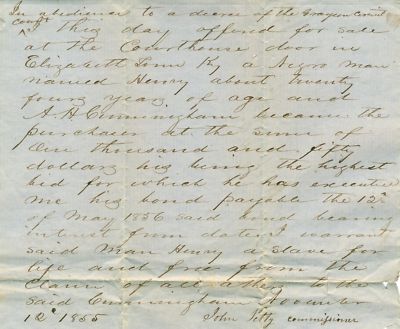 In obedience to a decree of the Grayson Circuit
court I this day offered for sale
at the Courthouse door in
Elizabeth Town Ky a Negro man
named Henry about twenty
four years of age and
A. H. Cunningham became the
purchaser at the sum of
One thousand and fifty
dollars his being the highest
bid for which he has executed
me his bond payable the 12th
of May 1856 said bond bearing
interest from date I warrant
said man Henry a slave for
life and free from the
claim of all others to the
said Cunningham November
12th 1855 John commissioner